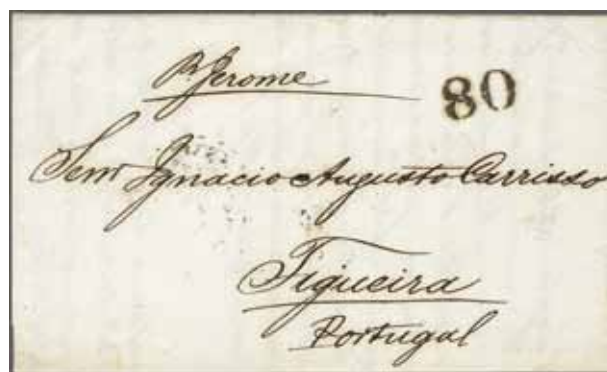 Pr Jerome
80
Senr Ignacio Augusto Carrisso
Figueira
Portugal